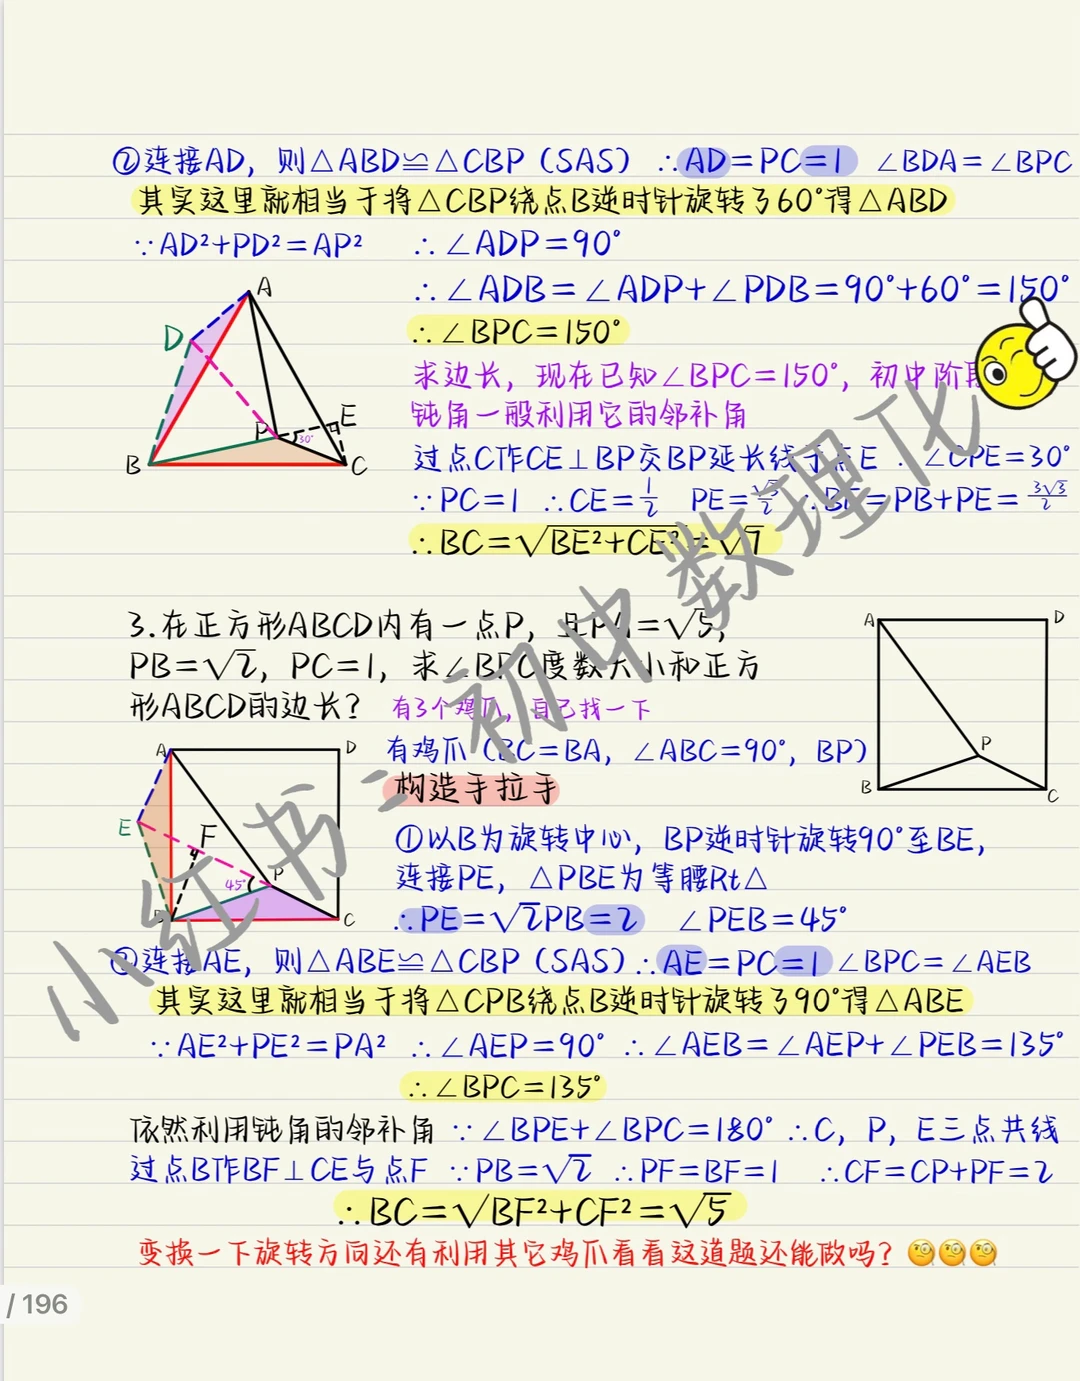 ②连接AD，则△ABD≌△CBP（SAS） ∴AD=PC=1 ∠BDA=∠BPC
其实这里就相当于将△CBP绕点B逆时针旋转了60°得△ABD
∵AD²+PD²=AP² ∴∠ADP=90°
∴∠ADB=∠ADP+∠PDB=90°+60°=150°
∴∠BPC=150°
求边长，现在已知∠BPC=150°，初中阶段
钝角一般利用它的邻补角
过点C作CE⊥BP交BP延长线于点E ∴∠CPE=30°
∵PC=1 ∴CE=1/2 PE=√3/2 ∴BE=PB+PE=3√3/2
∴BC=√BE²+CE²=√7
A
D
P
E
30°
B
C
3.在正方形ABCD内有一点P，且PA=√5，
PB=√2，PC=1，求∠BPC度数大小和正方
形ABCD的边长？ 有3个鸡爪，自己找一下
A
D
P
B
C
有鸡爪（BC=BA，∠ABC=90°，BP）
构造手拉手
①以B为旋转中心，BP逆时针旋转90°至BE，
连接PE，△PBE为等腰Rt△
∴PE=√2PB=2 ∠PEB=45°
A
D
E
F
45°
P
B
C
②连接AE，则△ABE≌△CBP（SAS）∴AE=PC=1 ∠BPC=∠AEB
其实这里就相当于将△CPB绕点B逆时针旋转了90°得△ABE
∵AE²+PE²=PA² ∴∠AEP=90° ∴∠AEB=∠AEP+∠PEB=135°
∴∠BPC=135°
依然利用钝角的邻补角 ∵∠BPE+∠BPC=180° ∴C，P，E三点共线
过点B作BF⊥CE与点F ∵PB=√2 ∴PF=BF=1 ∴CF=CP+PF=2
∴BC=√BF²+CF²=√5
变换一下旋转方向还有利用其它鸡爪看看这道题还能做吗？
小红书：初中数理化
/ 196